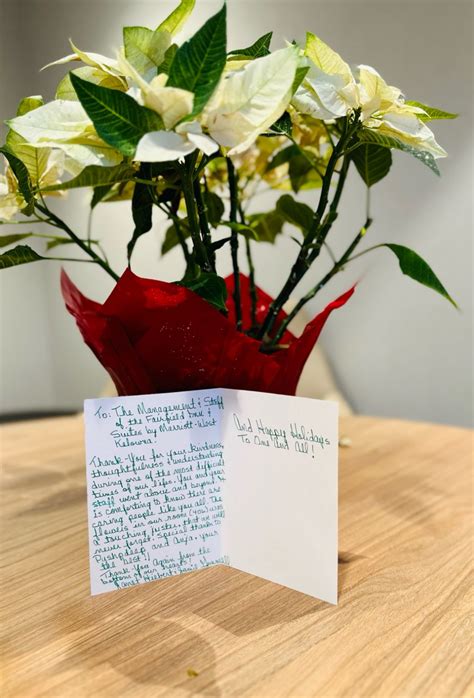 To: The Management & Staff
of the Fairfield Inn &
Suites by Marriott-West
Kelowna.
Thank You for your kindness,
thoughtfulness & understanding
during one of the most difficult
times of our life. You and your
staff went above and beyond. It
is comforting to know there are
caring people like you all. The
flowers in our room (408) was
a touching gesture, that we will
never forget. Special thanks to
Pushpdeep and
the best!!
Thank You again from the
bottom of our hearts
Janet
And Happy Holidays
To One and All!